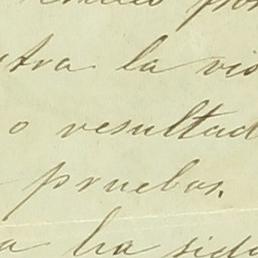 ntra la vio
o resultad
pruebas.
a ha sido